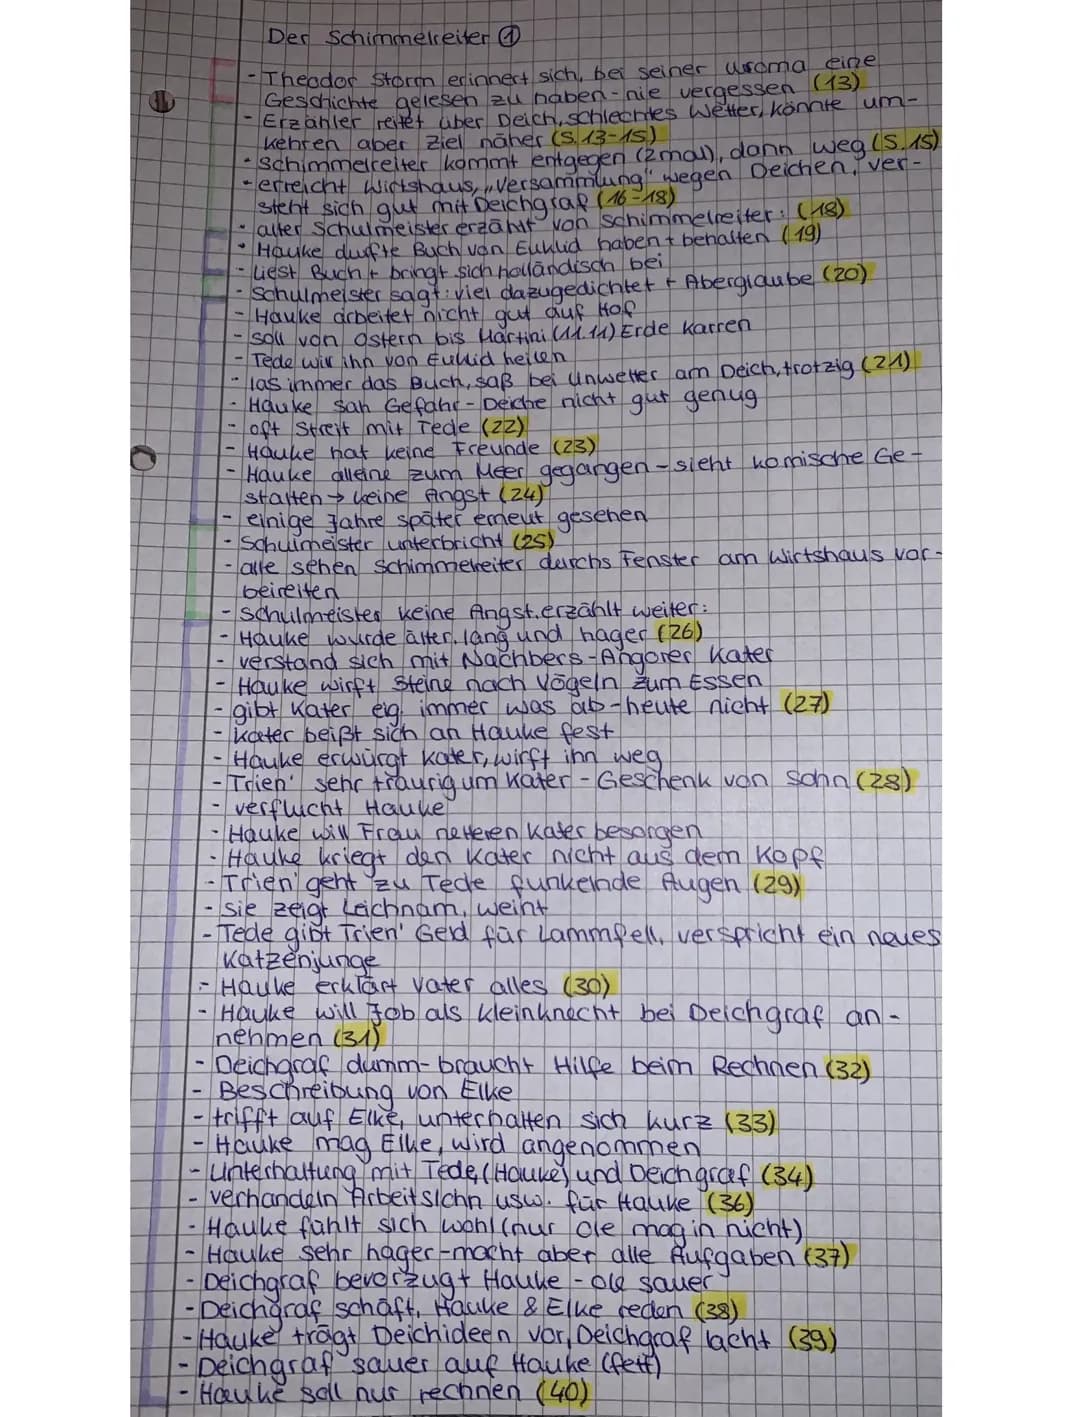 Der Schimmelreiter ①
- Theodor Storm erinnert sich, bei seiner Uroma eine
Geschichte gelesen zu haben - nie vergessen (13)
- Erzähler reitet über Deich, schlechtes Wetter, könnte um-
kehren aber Ziel näher (S.13-15)
- Schimmelreiter kommt entgegen (2mal), dann weg (S.15)
- erreicht Wirtshaus, „Versammlung" wegen Deichen, ver-
steht sich gut mit Deichgraf (16-18)
- alter Schulmeister erzählt von Schimmelreiter: (18)
- Hauke durfte Buch von Euklid haben + behalten (19)
- liest Buch + bringt sich holländisch bei
- Schulmeister sagt: viel dazugedichtet + Aberglaube (20)
- Hauke arbeitet nicht gut auf Hof
- soll von Ostern bis Martini (11.11) Erde karren
- Tede will ihn von Euklid heilen
- las immer das Buch, saß bei Unwetter am Deich, trotzig (21)
- Hauke sah Gefahr - Deiche nicht gut genug
- oft Streit mit Tede (22)
- Hauke hat keine Freunde (23)
- Hauke alleine zum Meer gegangen - sieht komische Ge-
stalten → keine Angst (24)
- einige Jahre später erneut gesehen
- Schulmeister unterbricht (25)
- alle sehen Schimmelreiter durchs Fenster am Wirtshaus vor-
beireiten
- Schulmeister keine Angst, erzählt weiter:
- Hauke wurde älter, lang und hager (26)
- verstand sich mit Nachbers-Angorer Kater
- Hauke wirft Steine nach Vögeln zum Essen
- gibt Kater eig. immer was ab - heute nicht (27)
- Kater beißt sich an Hauke fest
- Hauke erwürgt Kater, wirft ihn weg
- Trien' sehr traurig um Kater - Geschenk von Sohn (28)
- verflucht Hauke
- Hauke will Frau netteren Kater besorgen
- Hauke kriegt den Kater nicht aus dem Kopf
- Trien' geht zu Tede funkelnde Augen (29)
- sie zeigt Leichnam, weint
- Tede gibt Trien' Geld für Lammfell, verspricht ein neues
Katzenjunge
- Hauke erklärt Vater alles (30)
- Hauke will Job als Kleinknecht bei Deichgraf an-
nehmen (31)
- Deichgraf dumm - braucht Hilfe beim Rechnen (32)
- Beschreibung von Elke
- trifft auf Elke, unterhalten sich kurz (33)
- Hauke mag Elke, wird angenommen
- Unterhaltung mit Tede, (Hauke) und Deichgraf (34)
- verhandeln Arbeitslohn usw. für Hauke (36)
- Hauke fühlt sich wohl (nur Ole mag in nicht)
- Hauke sehr hager - macht aber alle Aufgaben (37)
- Deichgraf bevorzugt Hauke - Ole sauer
- Deichgraf schäft, Hauke & Elke reden (38)
- Hauke trägt Deichideen vor, Deichgraf lacht (39)
- Deichgraf sauer auf Hauke (fett)
- Hauke soll nur rechnen (40)